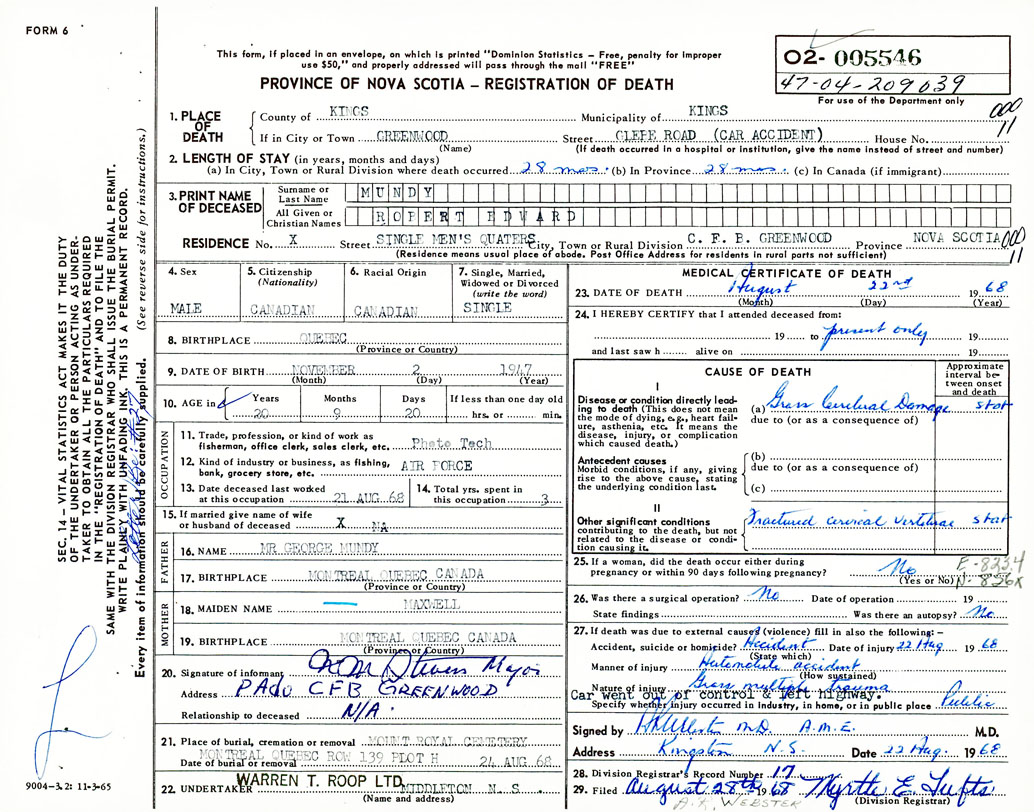 FORM 6
This form, if placed in an envelope, on which is printed "Dominion Statistics – Free, penalty for improper
use $50," and properly addressed will pass through the mail "FREE"
PROVINCE OF NOVA SCOTIA – REGISTRATION OF DEATH
02- 005546
47-04-209039
For use of the Department only
1. PLACE OF DEATH
County of KINGS Municipality of KINGS 000
If in City or Town GREENWOOD Street GLEFE ROAD (CAR ACCIDENT) House No. 11
(Name) (If death occurred in a hospital or institution, give the name instead of street and number)
2. LENGTH OF STAY (in years, months and days)
(a) In City, Town or Rural Division where death occurred 28 mos. (b) In Province 28 mos. (c) In Canada (if immigrant)
3. PRINT NAME OF DECEASED
Surname or Last Name MUNDY
All Given or Christian Names ROPERT EDWARD
RESIDENCE No. X Street SINGLE MEN'S QUATERS City, Town or Rural Division C. F. B. GREENWOOD Province NOVA SCOTIA 000
(Residence means usual place of abode. Post Office Address for residents in rural parts not sufficient) 11
4. Sex
MALE
5. Citizenship
(Nationality)
CANADIAN
6. Racial Origin
CANADIAN
7. Single, Married,
Widowed or Divorced
(write the word)
SINGLE
8. BIRTHPLACE QUEBEC
(Province or Country)
9. DATE OF BIRTH NOVEMBER 2 1947
(Month) (Day) (Year)
10. AGE in Years Months Days If less than one day old
20 9 20 hrs. or min.
OCCUPATION
11. Trade, profession, or kind of work as
fisherman, office clerk, sales clerk, etc. Photo Tech
12. Kind of industry or business, as fishing,
bank, grocery store, etc. AIR FORCE
13. Date deceased last worked
at this occupation 21 AUG 68
14. Total yrs. spent in
this occupation 3
15. If married give name of wife
or husband of deceased X NA
FATHER
16. NAME MR GEORGE MUNDY
17. BIRTHPLACE MONTREAL QUEBEC CANADA
(Province or Country)
MOTHER
18. MAIDEN NAME MAXWELL
19. BIRTHPLACE MONTREAL QUEBEC CANADA
(Province or Country)
20. Signature of informant Stevens Major
Address PAdO CFB GREENWOOD
Relationship to deceased N/A.
21. Place of burial, cremation or removal MOUNT ROYAL CEMETERY
MONTREAL QUEBEC ROW 139 PLOT H
Date of burial or removal 24 AUG 68
22. UNDERTAKER WARREN T. ROOP LTD. MIDDLETON N. S.
(Name and address)
MEDICAL CERTIFICATE OF DEATH
23. DATE OF DEATH August 22nd 1968
(Month) (Day) (Year)
24. I HEREBY CERTIFY that I attended deceased from:
19 to present only 19
and last saw h alive on 19
CAUSE OF DEATH
Approximate
interval be-
tween onset
and death
I
Disease or condition directly lead-
ing to death (This does not mean
the mode of dying, e.g., heart fail-
ure, asthenia, etc. It means the
disease, injury, or complication
which caused death.)
(a) Gross Cerebral Damage stat
due to (or as a consequence of)
Antecedent causes
Morbid conditions, if any, giving
rise to the above cause, stating
the underlying condition last.
(b)
due to (or as a consequence of)
(c)
II
Other significant conditions
contributing to the death, but not
related to the disease or condi-
tion causing it.
Fractured cervical vertebrae stat
25. If a woman, did the death occur either during
pregnancy or within 90 days following pregnancy? No
(Yes or No)
E-8234
N-826X
26. Was there a surgical operation? No Date of operation 19
State findings Was there an autopsy? No
27. If death was due to external causes (violence) fill in also the following: –
Accident, suicide or homicide? Accident Date of injury 22 Aug 1968
(State which)
Manner of injury Automobile accident
(How sustained)
Nature of injury Gross multiple trauma
Car went out of control & left highway.
Specify whether injury occurred in Industry, in home, or in public place Public
Signed by M.D. A.M.E. M.D.
Address Kingston N.S. Date 22 Aug. 1968
28. Division Registrar's Record Number 17
29. Filed August 28th 1968 Myrtle E. Tufts
(Division Registrar)
A.K. WEBSTER
SEC. 14 – VITAL STATISTICS ACT MAKES IT THE DUTY
OF THE UNDERTAKER OR PERSON ACTING AS UNDER-
TAKER TO OBTAIN ALL THE PARTICULARS REQUIRED
IN THE "REGISTRATION OF DEATH" AND TO FILE THE
SAME WITH THE DIVISION REGISTRAR WHO SHALL ISSUE THE BURIAL PERMIT.
WRITE PLAINLY WITH UNFADING INK. THIS IS A PERMANENT RECORD.
Every item of information should be carefully supplied. (See reverse side for instructions.)
9004-3.2: 11-3-65